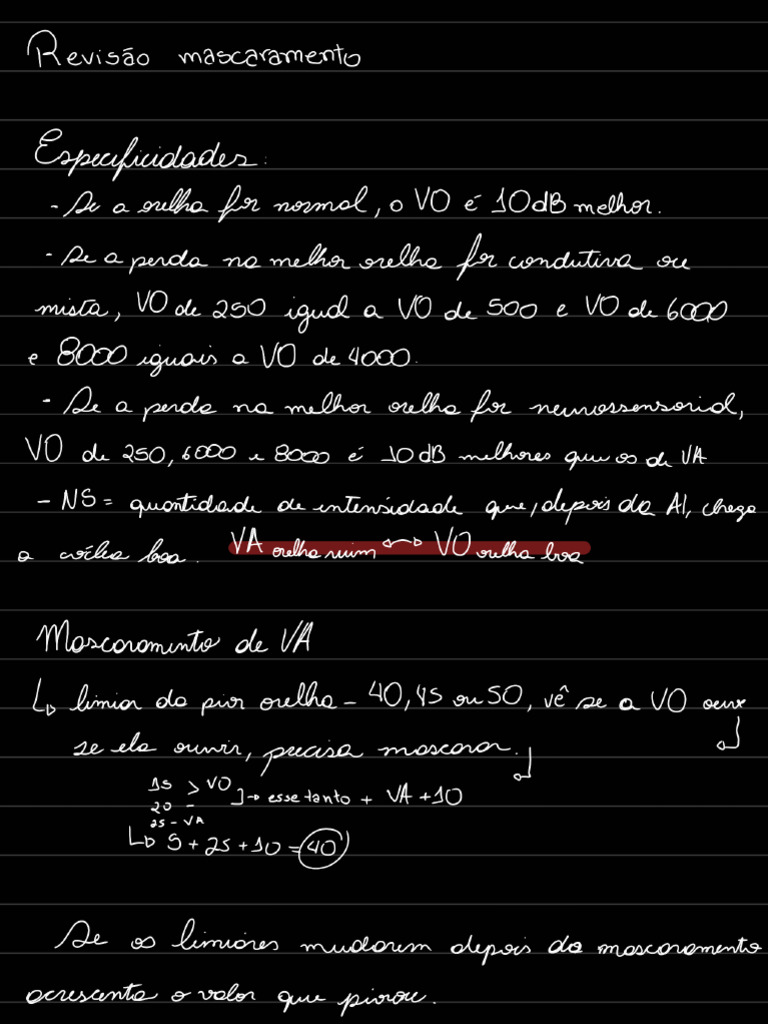 Revisão mascaramento
Especificidades:
- Se a orelha for normal, o VO é 10dB melhor.
- Se a perda na melhor orelha for condutiva ou
mista, VO de 250 igual a VO de 500 e VO de 6000
e 8000 iguais a VO de 4000.
- Se a perda na melhor orelha for neurossensorial,
VO de 250, 6000 e 8000 é 10dB melhores que os de VA
- NS = quantidade de intensidade que, depois da AI, chega
a cóclea boa. VA orelha ruim ↔ VO orelha boa
Mascaramento de VA
↳ limiar da pior orelha - 40, 45 ou 50, vê se a VO ouve
se ela ouvir, precisa mascarar.
15 > VO
20 - ]→ esse tanto + VA + 10
25 - VA
↳ 5 + 25 + 10 = 40
Se os limiares mudarem depois do mascaramento
acrescenta o valor que piorou.